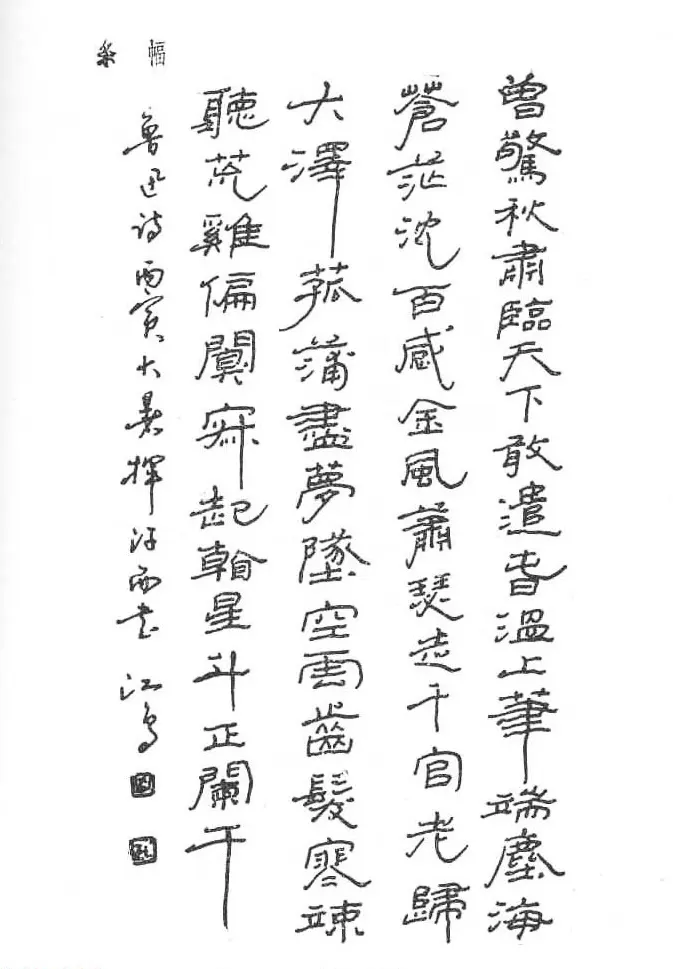 条幅
曾驚秋肅臨天下敢遣春溫上筆端塵海
蒼茫沈百感金風蕭瑟走千官老歸
大澤菰蒲盡夢墜空雲齒髮寒竦
聽荒雞偏闃寂起看星斗正闌干
魯迅诗丙寅大暑揮汗而书 江